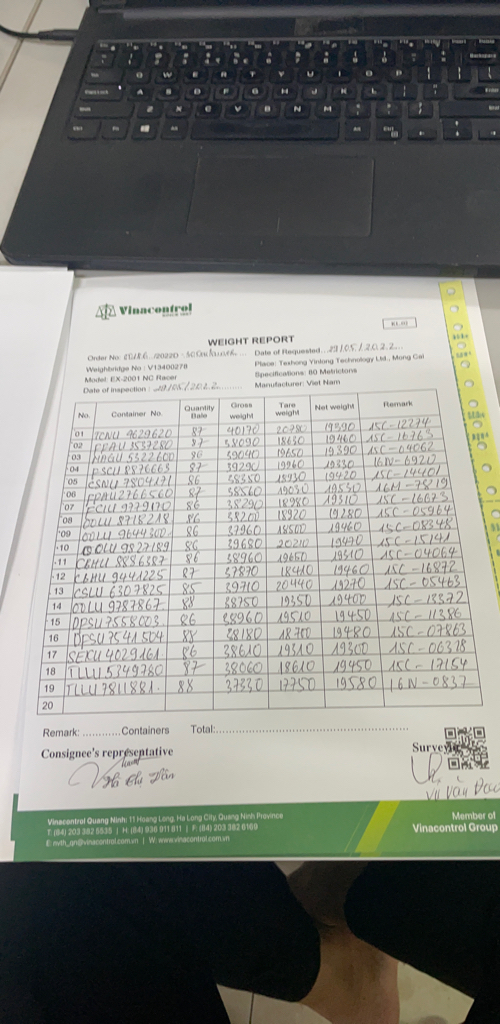 Vinacontrol
SINCE 1957
WEIGHT REPORT
Order No: /2022D Date of Requested 29/05/2022
Weighbridge No : V13400278 Place: Texhong Yinlong Technology Ltd., Mong Cai
Model: EX-2001 NC Racer Specifications: 80 Metrictons
Date of inspection : 29/05/2022 Manufacturer: Viet Nam
No. Container No. Quantity Bale Gross weight Tare weight Net weight Remark
01 TCNU 9629620 87 40170 20780 19390 15C-12274
02 FFAU 1537280 87 38090 18630 19460 15C-16763
03 HDGU 5322600 86 39040 19650 19390 15C-04062
04 87 39290 19960 19330 16N-6920
05 CSNU 7804171 86 38350 18930 19420 15C-14401
06 FFAU 2766560 87 38560 19030 19530 16M-7819
07 86 38290 18980 19310 15C-16673
08 OOLU 8718218 86 38200 18920 19280 15C-05964
09 OOLU 9644300 86 37960 18500 19460 15C-08348
10 OOLU 9827189 86 39680 20210 19470 15C-15141
11 CBHU 8886387 86 38960 19650 19310 15C-04064
12 CBHU 9441225 87 37870 18410 19460 15C-16872
13 CSLU 6307825 85 39710 20440 19270 15C-05463
14 OOLU 9787867 88 38750 19350 19400 15C-13372
15 DPSU 7558003 86 38960 19510 19450 15C-11386
16 DPSU 7541504 88 38180 18700 19480 15C-07863
17 SEKU 4029161 86 38610 19310 19300 15C-06328
18 TLLU 5349780 87 38060 18610 19450 15C-17154
19 TLLU 7811881 88 37330 17750 19580 16N-0837
20
Remark: ............Containers Total:
Consignee's representative Surveyor
Vinacontrol Quang Ninh: 11 Hoang Long, Ha Long City, Quang Ninh Province
T: (84) 203 382 5535 | H: (84) 936 911 811 | F: (84) 203 382 6169
E: nvth_qn@vinacontrol.com.vn | W: www.vinacontrol.com.vn
Member of
Vinacontrol Group